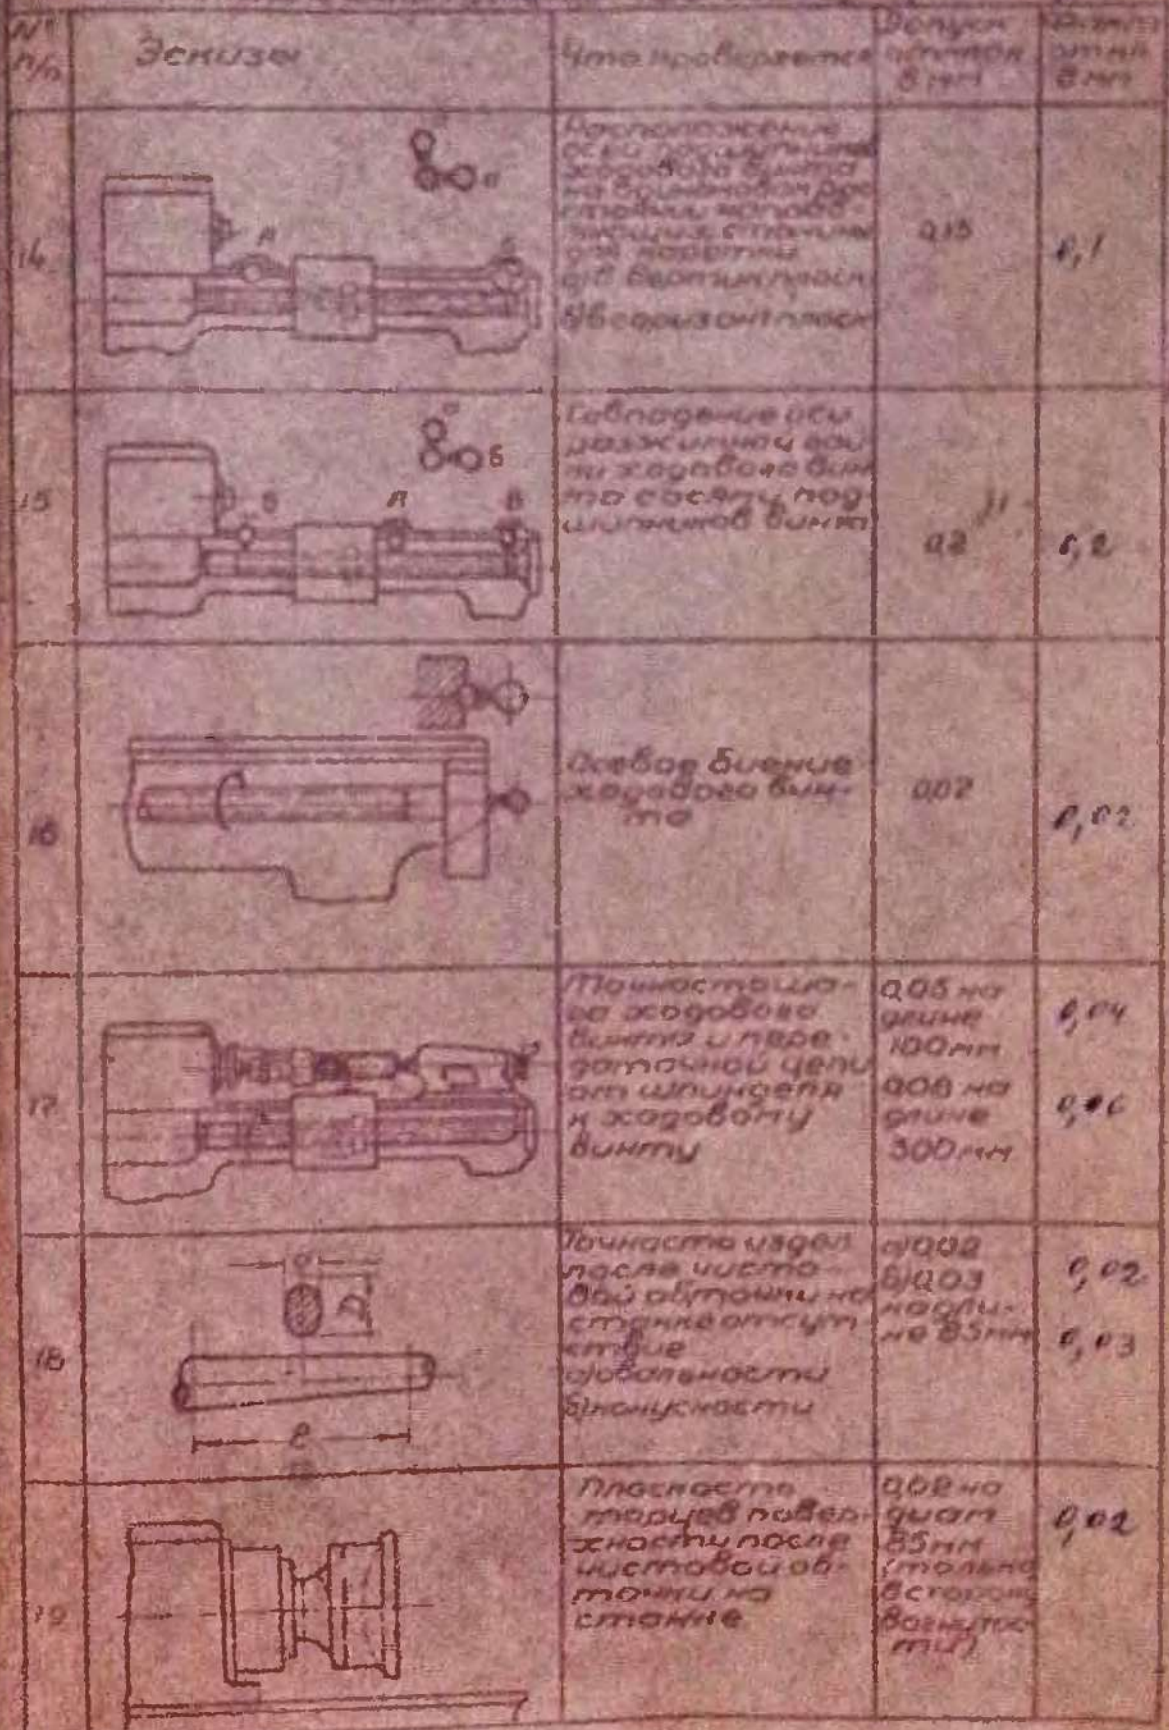 №
п/п
Эскизы
Что проверяется
Допуск
в мм
в мм
14
А
Б
а
Расположение
осей подшипников
ходового винта
на одинаковом рас
стоянии направ-
ляющих станины
для каретки
а) в вертик плоск
б) в горизонт плоск
0,15
0,1
15
а
Б
Б
А
В
Совпадение оси
разжимной гай
ки ходового вин
та с осями под-
шипников винта
0,2
0,2
16
Осевое биение
ходового вин-
та
0,02
0,02
17
Точность ша-
га ходового
винта и пере-
даточной цепи
от шпинделя
к ходовому
винту
0,05 на
длине
100мм
0,08 на
длине
300мм
0,04
0,06
18
Д
ℓ
Точность издел
после чисто-
вой обточки на
станке отсут
ствие
а) овальности
б) конусности
а) 0,02
б) 0,03
на дли-
не 85мм
0,02
0,03
19
Плоскость
торцев повер-
хности после
чистовой об-
точки на
станке
0,02 на
диам
85мм
(только
в сторон
вогнутос-
ти)
0,02